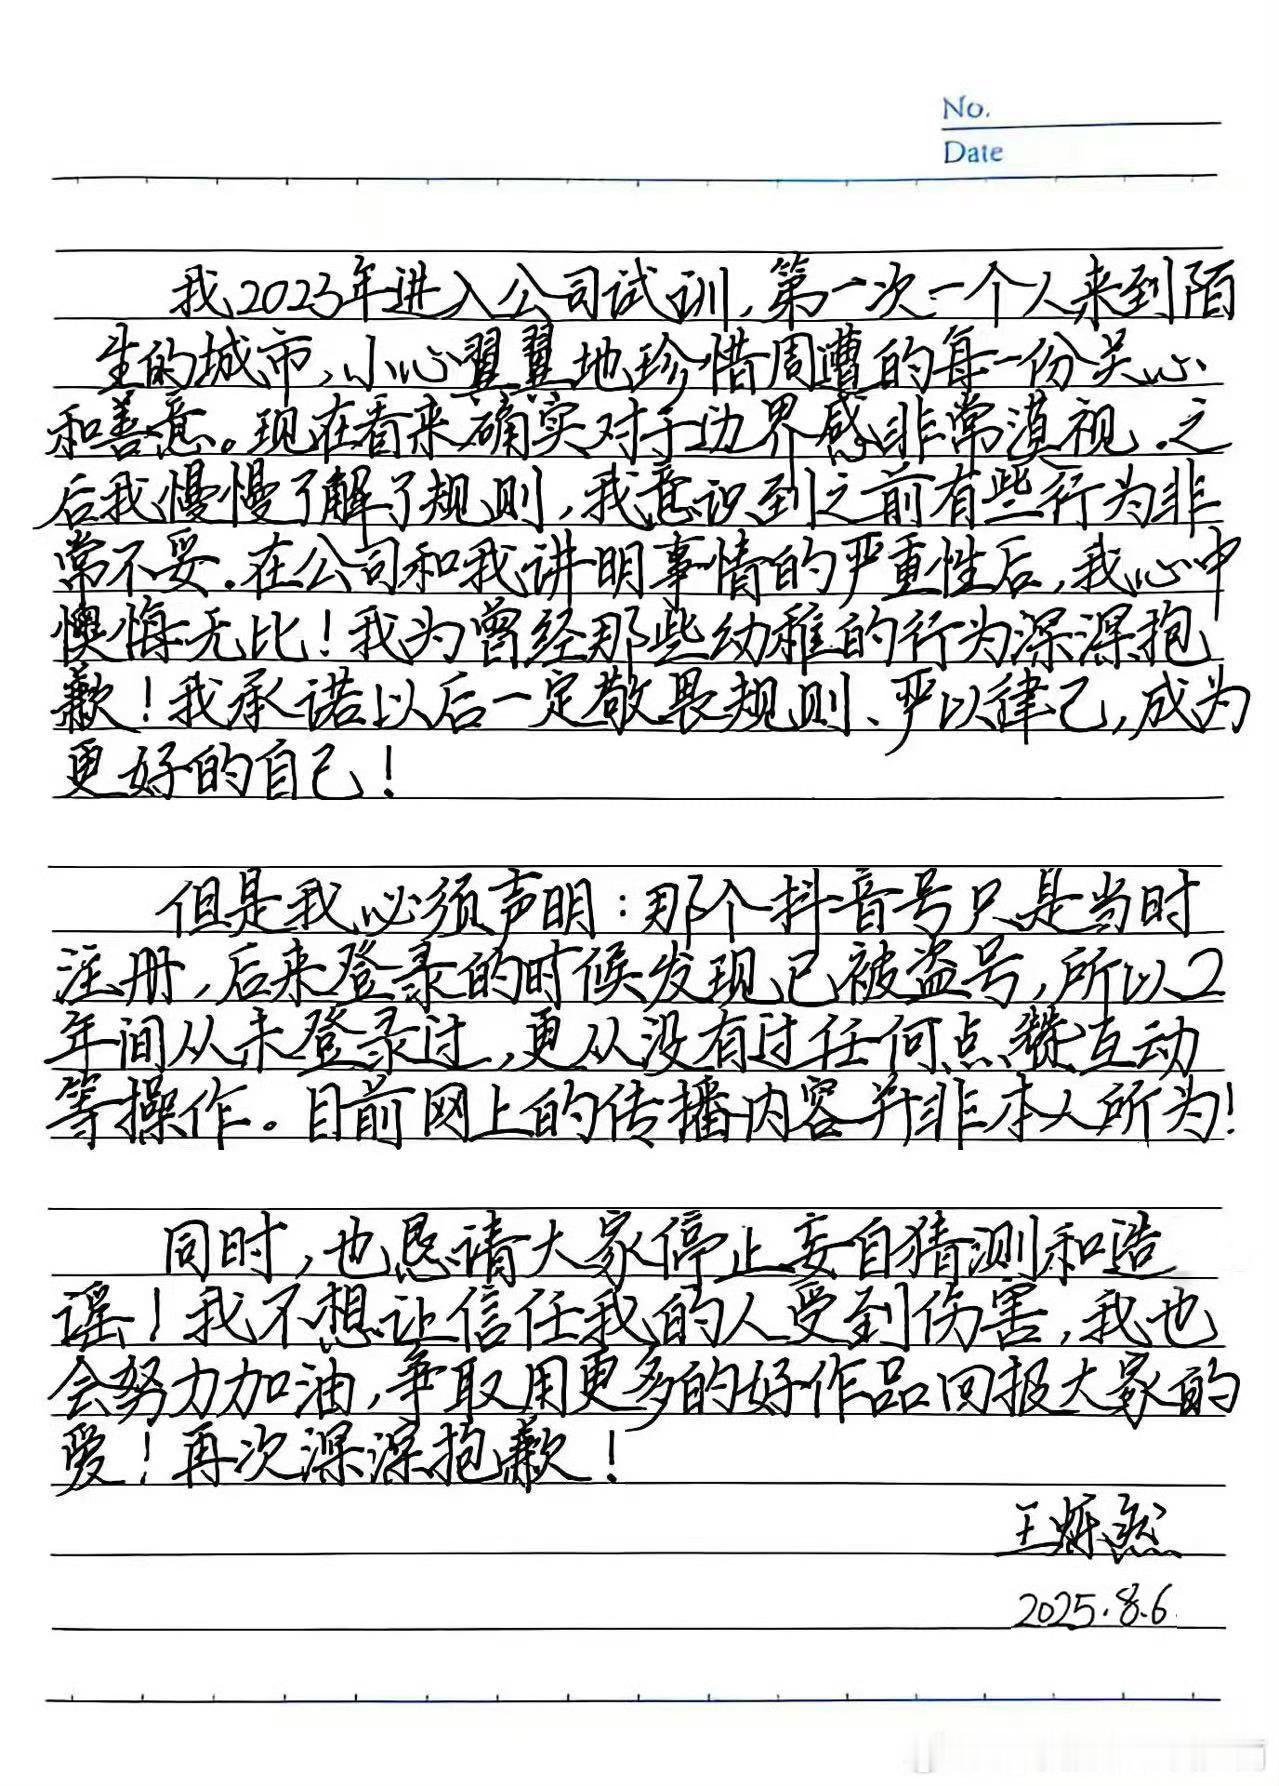 No.
Date
我2023年进入公司试训,第一次一个人来到陌
生的城市,小心翼翼地珍惜周遭的每一份关心
和善意。现在看来确实对于边界感非常漠视.之
后我慢慢了解了规则,我意识到之前有些行为非
常不妥.在公司和我讲明事情的严重性后,我心中
懊悔无比!我为曾经那些幼稚的行为深深抱
歉!我承诺以后一定敬畏规则、严以律己,成为
更好的自己!
但是我必须声明:那个抖音号只是当时
注册,后来登录的时候发现已被盗号,所以2
年间从未登录过,更从没有过任何点赞互动
等操作。目前网上的传播内容并非本人所为!
同时,也恳请大家停止妄自猜测和造
谣!我不想让信任我的人受到伤害,我也
会努力加油,争取用更多的好作品回报大家的
爱!再次深深抱歉!
王烁然
2025.8.6.